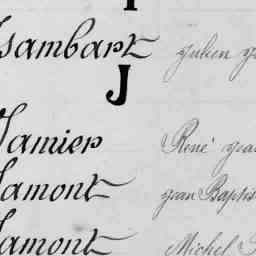 Isambart Julien
J
Jamier René Jean
Jamont Jean Baptis
Jamont Michel